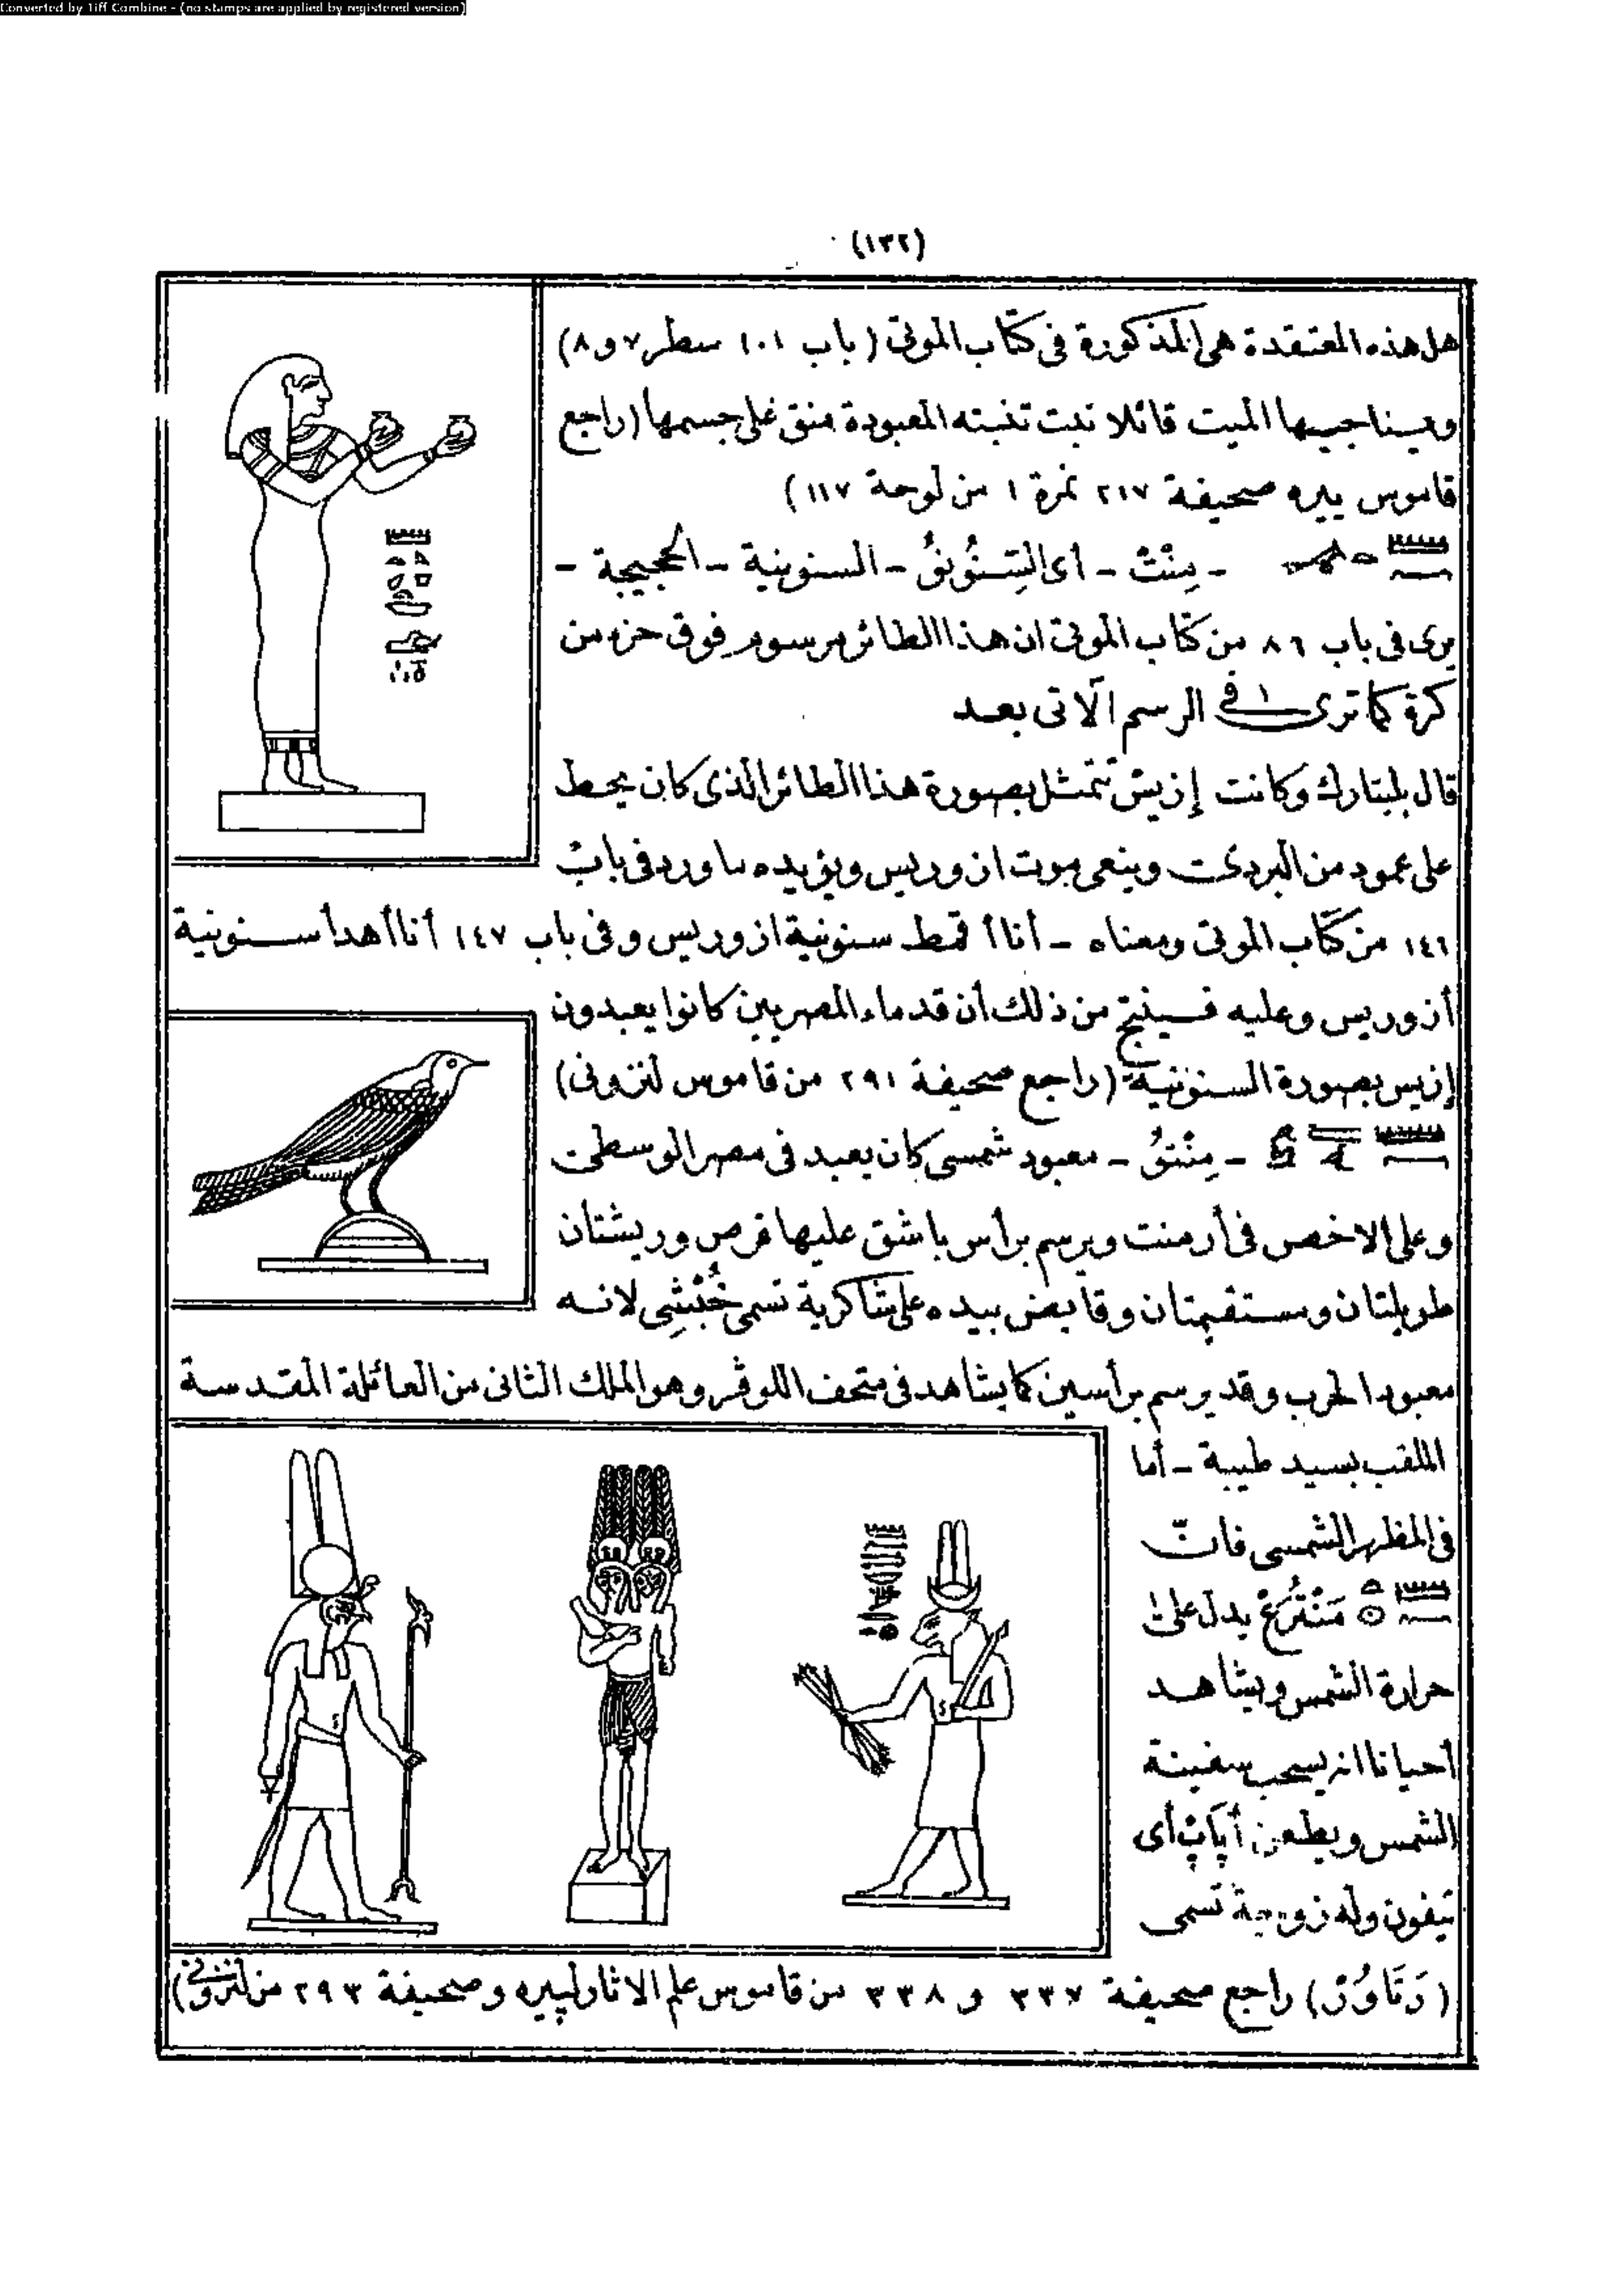 Converted by Tiff Combine - (no stamps are applied by registered version)
(١٣٢)
هل هذه المعتقدة هى المذكورة فى كتاب الموتى (باب ١٠١ سطر ٧ و ٨)
الميت قائلا المعبودة على جسمها (راجع
قاموس بيره صحيفة ٢١٧ نمرة ١ من لوحة ١١٧)
- مِنْتْ - أى - السنونية - -
يرى فى باب ٨٦ من كتاب الموتى ان هذا الطائر مرسوم فوق جزء من
كرة كما ترى فى الرسم الآتى بعد
قال بلتارك وكانت إزيس تتمثل بصورة هذا الطائر الذى كان يحط
على عمود من البردى وينعى موت ازوريس ويؤيده ما ورد فى باب
١٤٦ من كتاب الموتى ومعناه - أنا أقمط سنونية ازوريس وفى باب ١٤٧ أنا أهدأ سنونية
أزوريس وعليه فينتج من ذلك أن قدماء المصريين كانوا يعبدون
إزيس بصورة السنونية (راجع صحيفة ٢٩١ من قاموس لنزونى)
- مِنْتُو - معبود شمسى كان يعبد فى مصر الوسطى
وعلى الاخص فى أرمنت ويرسم برأس باشق عليها قرص وريشتان
طويلتان ومستقيمتان وقابض بيده على شاكرية تسمى خُبْشِى لانه
معبود الحرب وقد يرسم برأسين كما يشاهد فى متحف اللوڤر وهو الملك الثانى من العائلة المقدسة
الملقب بسيد طيبة - أما
فى المظهر الشمسى فانّ
مَنْتُرَعْ يدل على
حرارة الشمس ويشاهد
أحيانا انه يسحب سفينة
الشمس ويطعن أپاپ أى
تيفون وله زوجة تسمى
( ) راجع صحيفة ٣٣٧ و ٣٣٨ من قاموس علم الاثار لبيره وصحيفة ٢٩٣ من لنزونى)